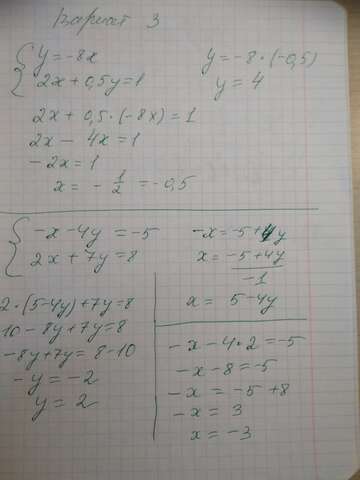 Вариант 3
y = -8x
2x + 0,5y = 1
2x + 0,5 · (-8x) = 1
2x - 4x = 1
-2x = 1
x = - 1/2 = -0,5
y = -8 · (-0,5)
y = 4
-x - 4y = -5
2x + 7y = 8
-x = -5 + 4y
x = -5 + 4y / -1
x = 5 - 4y
2 · (5 - 4y) + 7y = 8
10 - 8y + 7y = 8
-8y + 7y = 8 - 10
-y = -2
y = 2
-x - 4 · 2 = -5
-x - 8 = -5
-x = -5 + 8
-x = 3
x = -3